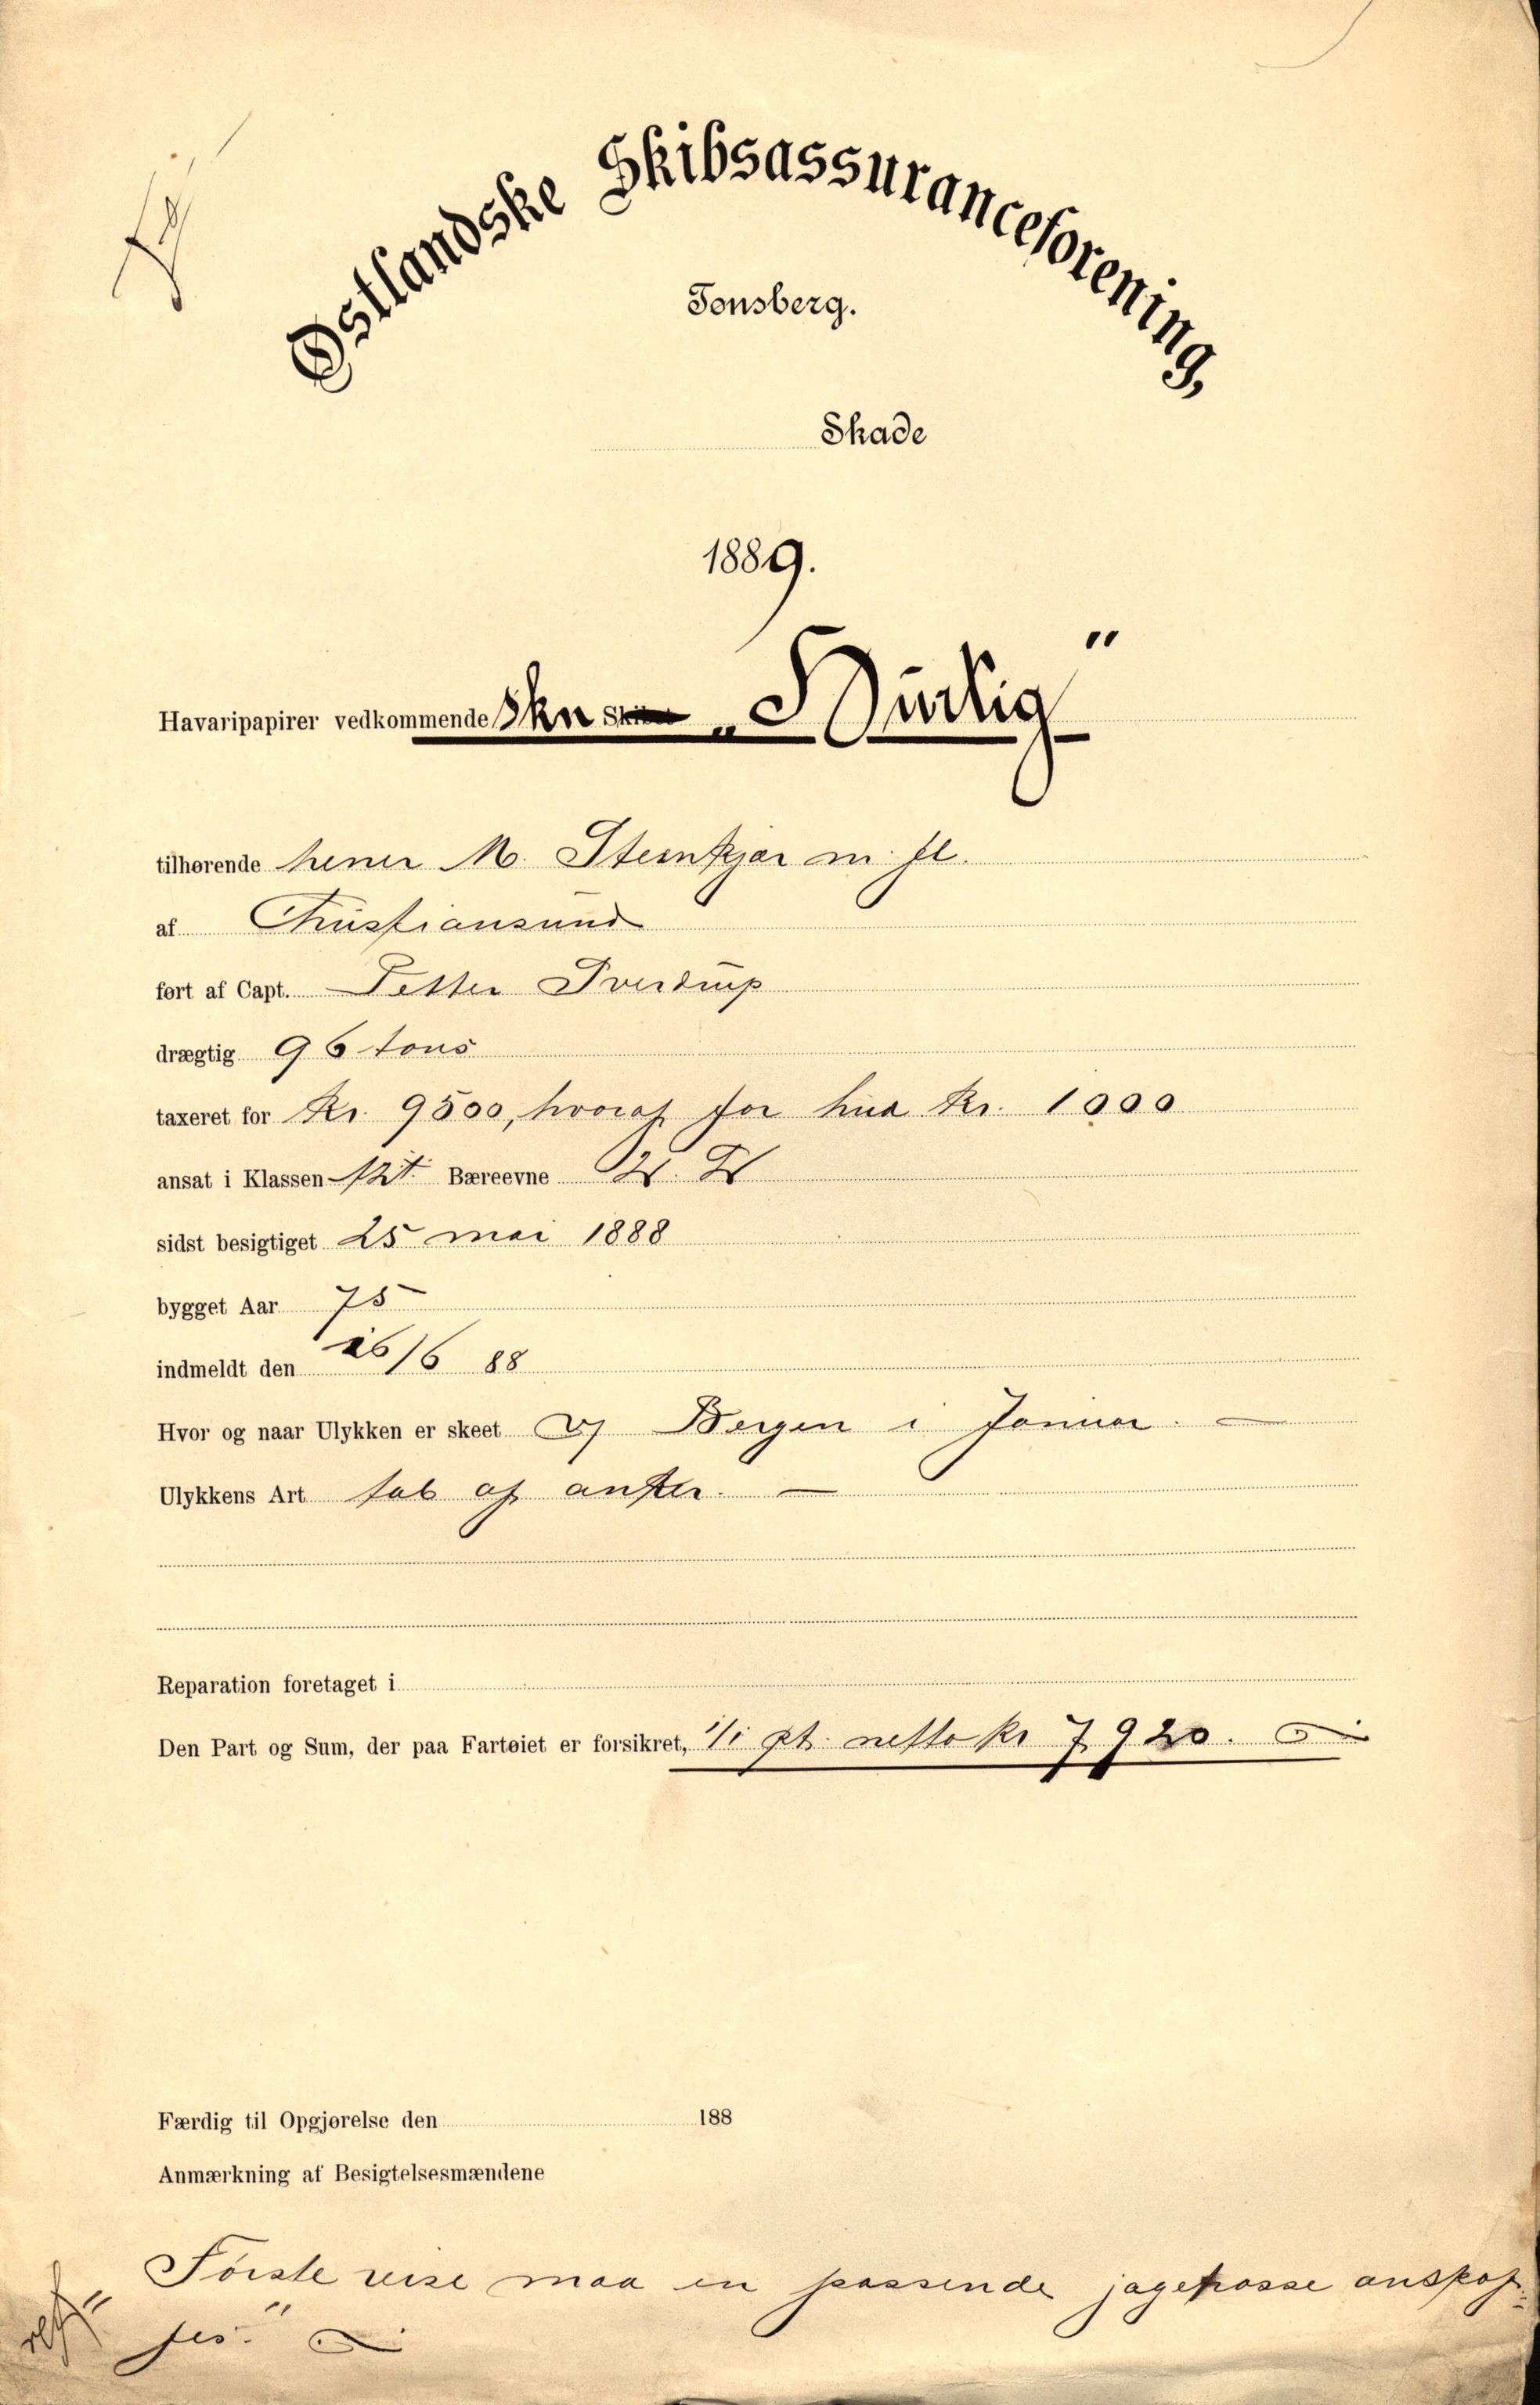 Østlandske Skibsassuranceforening,
Tønsberg.
Skade
1889.
Havaripapirer vedkommende Skn „Hurtig"
tilhørende herrer M. Steinkjær m. fl.
af Christiansund
ført af Capt. Petter Sverdrup
drægtig 96 tons
taxeret for Kr. 9500, hvoraf for hud Kr. 1000
ansat i Klassen Bæreevne
sidst besigtiget 25 mai 1888
bygget Aar 75
indmeldt den 26/6 88
Hvor og naar Ulykken er skeet v/ Bergen i Januar. —
Ulykkens Art tab af anker. —
Reparation foretaget i
Den Part og Sum, der paa Fartøiet er forsikret, 1/1 pt. netto kr 7920.
Færdig til Opgjørelse den 188
Anmærkning af Besigtelsesmændene
" Første reise maa en passende anskaf-
fes."